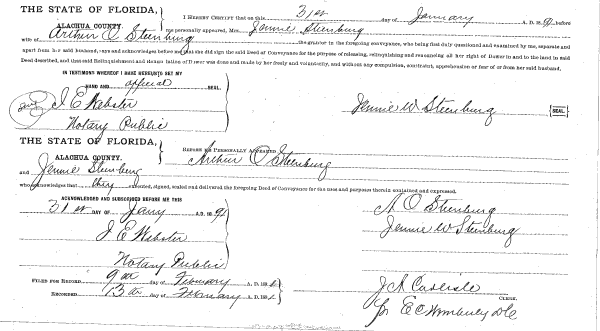 THE STATE OF FLORIDA,
ALACHUA COUNTY.
I HEREBY CERTIFY that on this 31st day of January A. D. 1891 before
me personally appeared, Mrs. Jennie Steenburg
wife of Arthur O Steenburg the grantor in the foregoing conveyance, who being first duly questioned and examined by me, separate and
apart from her said husband, says and acknowledges before me that she did sign the said Deed of Conveyance for the purpose of releasing, relinquishing and all her right of Dower in and to the land in said
Deed described, and that said Relinquishment and Renunciation of Dower was done and made by her freely and voluntarily, and without any compulsion, constraint, apprehension or fear of or from her said husband.
IN TESTIMONY WHEREOF I MAKE HEREUNTO SET MY
HAND AND official SEAL.
Seal
J. E. Webster
Notary Public
Jennie W Steenburg SEAL
THE STATE OF FLORIDA,
ALACHUA COUNTY.
BEFORE ME PERSONALLY APPEARED Arthur O Steenburg
and Jennie Steenburg
who acknowledges that they executed, signed, sealed and delivered the foregoing Deed of Conveyance for the uses and purposes therein contained and expressed.
ACKNOWLEDGED AND SUBSCRIBED BEFORE ME THIS
31st DAY OF Jany A. D. 1891
J. E. Webster
Notary Public
A. O. Steenburg
Jennie W Steenburg
FILED FOR RECORD 9th day of February A. D. 1891
RECORDED 13th day of February A. D. 1891
J A Carlisle
CLERK.
pr E C Wimberley D C